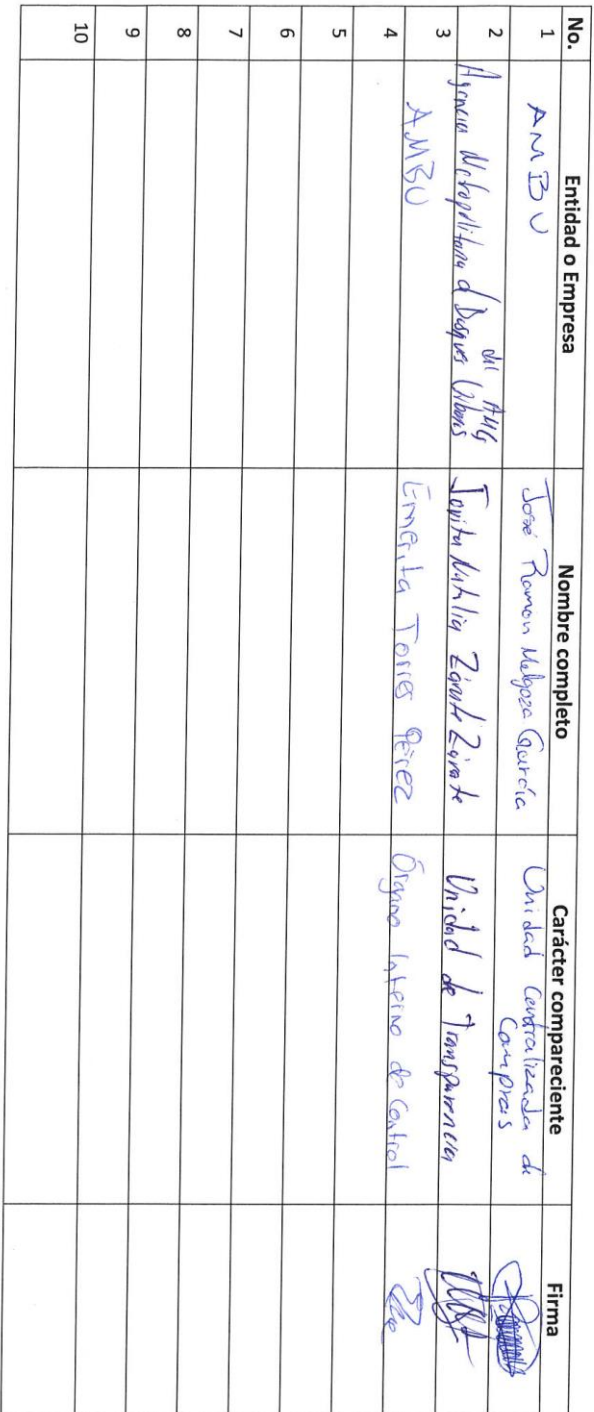 No. Entidad o Empresa Nombre completo Carácter compareciente Firma
1 AMBU José Ramon Melgoza García Unidad Centralizada de
Compras
2 Agencia Metropolitana d Bosques Urbanos del AMG Jovita Natalia Zárate Zárate Unidad de Transparencia
3 AMBU Emerita Torres Pérez Órgano Interno de Control
4
5
6
7
8
9
10